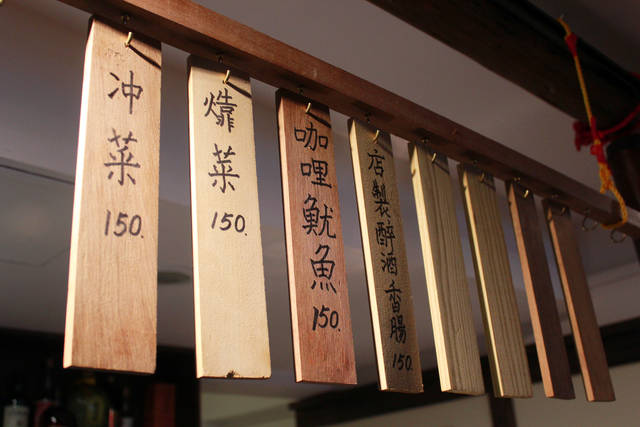 冲菜 150.
㸆菜 150.
咖哩魷魚 150.
店製醉酒香腸 150.